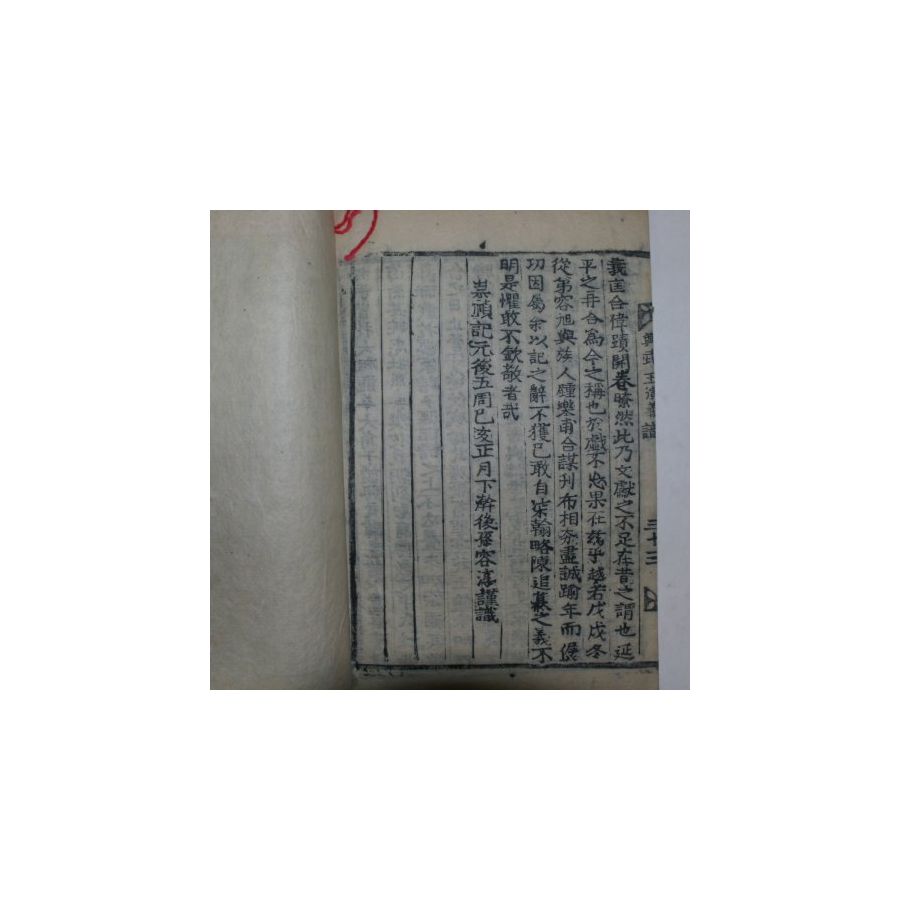 義匡合偉蹟開卷暸然此乃文獻之不足在昔之謂也延
平之再合爲今之稱也於戲不忒果在玆乎越若戊戌冬
從第容旭與族人鍾樂甫合謀刊布相夯盡誠踰年而僝
功因屬余以記之辭不獲已敢自柒翰略陳追慕之義不
明是懼敢不欽敬者哉
崇禎記元後五周己亥正月下澣後孫容淳謹識
三十三